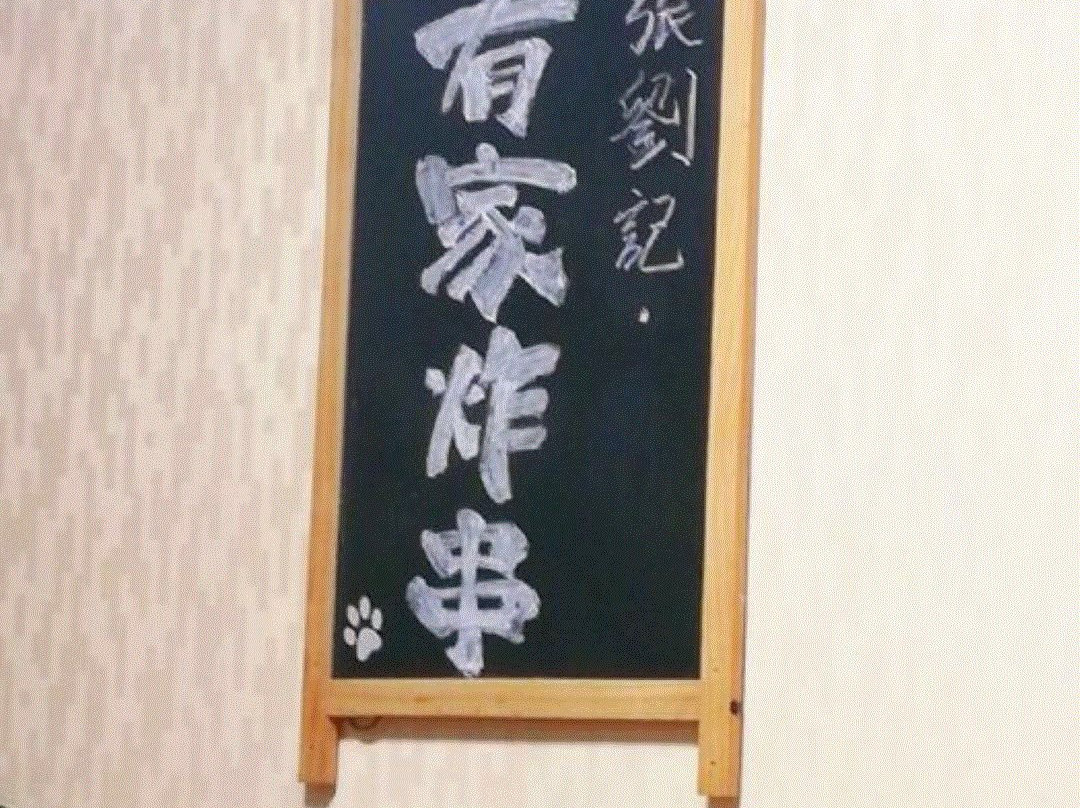 張劉記·
有家炸串